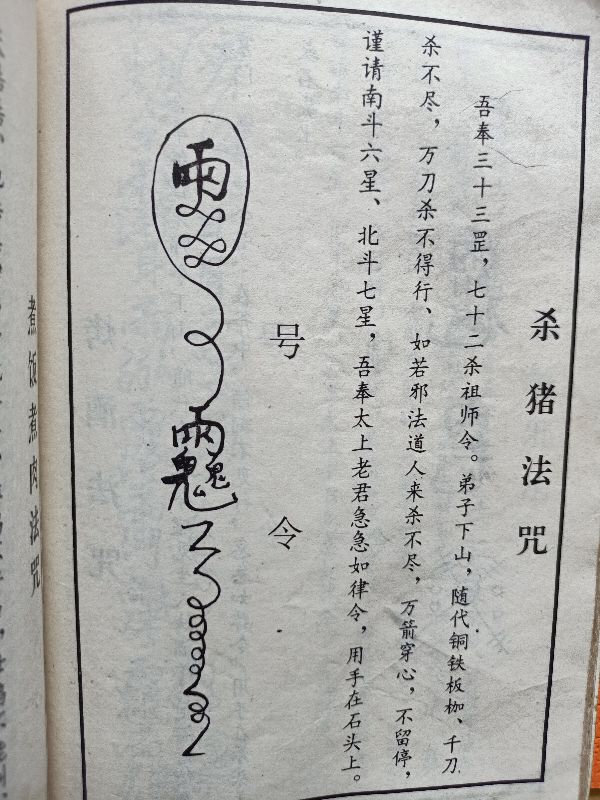 杀猪法咒
吾奉三十三罡，七十二杀祖师令。弟子下山，随代铜铁板枷、千刀
杀不尽，万刀杀不得行、如若邪法道人来杀不尽，万箭穿心，不留停，
谨请南斗六星、北斗七星，吾奉太上老君急急如律令，用手在石头上。
号令
雨
雨鬼鬼
煮饭煮肉法咒